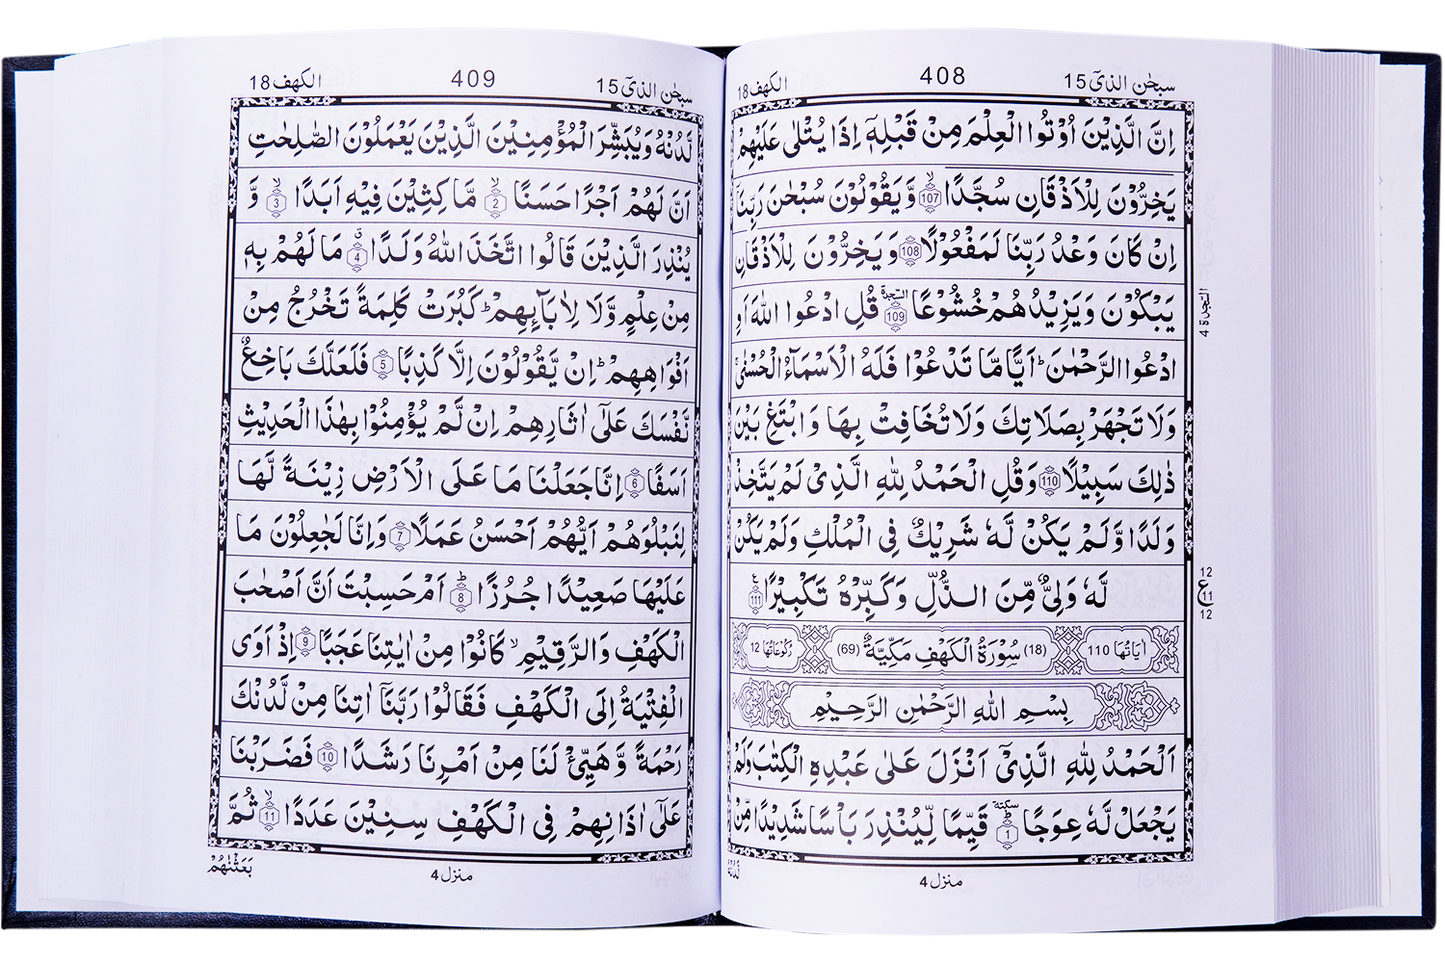 سبحٰن الذیٓ 15
408
الكهف 18
اِنَّ الَّذِيْنَ اُوْتُوا الْعِلْمَ مِنْ قَبْلِهٖۤ اِذَا يُتْلٰى عَلَيْهِمْ
يَخِرُّوْنَ لِلْاَذْقَانِ سُجَّدًا ۙ 107 وَّيَقُوْلُوْنَ سُبْحٰنَ رَبِّنَاۤ
اِنْ كَانَ وَعْدُ رَبِّنَا لَمَفْعُوْلًا 108 وَيَخِرُّوْنَ لِلْاَذْقَانِ
يَبْكُوْنَ وَيَزِيْدُهُمْ خُشُوْعًا السجدة 109 قُلِ ادْعُوا اللّٰهَ اَوِ
السجدة 4
ادْعُوا الرَّحْمٰنَ ؕ اَيًّا مَّا تَدْعُوْا فَلَهُ الْاَسْمَآءُ الْحُسْنٰى ۚ
وَلَا تَجْهَرْ بِصَلَاتِكَ وَلَا تُخَافِتْ بِهَا وَابْتَغِ بَيْنَ
ذٰلِكَ سَبِيْلًا 110 وَقُلِ الْحَمْدُ لِلّٰهِ الَّذِيْ لَمْ يَتَّخِذْ
وَلَدًا وَّلَمْ يَكُنْ لَّهٗ شَرِيْكٌ فِي الْمُلْكِ وَلَمْ يَكُنْ
لَّهٗ وَلِيٌّ مِّنَ الذُّلِّ وَكَبِّرْهُ تَكْبِيْرًا ع 111
12
ع 11
12
اٰيَاتُهَا 110 (18) سُوْرَةُ الْكَهْفِ مَكِّيَّةٌ (69) رُكُوْعَاتُهَا 12
بِسْمِ اللّٰهِ الرَّحْمٰنِ الرَّحِيْمِ
اَلْحَمْدُ لِلّٰهِ الَّذِيْۤ اَنْزَلَ عَلٰى عَبْدِهِ الْكِتٰبَ وَلَمْ
يَجْعَلْ لَّهٗ عِوَجًا ؕ سكته 1 قَيِّمًا لِّيُنْذِرَ بَاْسًا شَدِيْدًا مِّنْ
منزل 4
لَّدُنْهُ
سبحٰن الذیٓ 15
409
الكهف 18
لَّدُنْهُ وَيُبَشِّرَ الْمُؤْمِنِيْنَ الَّذِيْنَ يَعْمَلُوْنَ الصّٰلِحٰتِ
اَنَّ لَهُمْ اَجْرًا حَسَنًا ۙ 2 مَّاكِثِيْنَ فِيْهِ اَبَدًا ۙ 3 وَّ
يُنْذِرَ الَّذِيْنَ قَالُوا اتَّخَذَ اللّٰهُ وَلَدًا ۗ 4 مَا لَهُمْ بِهٖ
مِنْ عِلْمٍ وَّلَا لِاٰبَآئِهِمْ ؕ كَبُرَتْ كَلِمَةً تَخْرُجُ مِنْ
اَفْوَاهِهِمْ ؕ اِنْ يَّقُوْلُوْنَ اِلَّا كَذِبًا 5 فَلَعَلَّكَ بَاخِعٌ
نَّفْسَكَ عَلٰۤى اٰثَارِهِمْ اِنْ لَّمْ يُؤْمِنُوْا بِهٰذَا الْحَدِيْثِ
اَسَفًا 6 اِنَّا جَعَلْنَا مَا عَلَى الْاَرْضِ زِيْنَةً لَّهَا
لِنَبْلُوَهُمْ اَيُّهُمْ اَحْسَنُ عَمَلًا 7 وَاِنَّا لَجٰعِلُوْنَ مَا
عَلَيْهَا صَعِيْدًا جُرُزًا ؕ 8 اَمْ حَسِبْتَ اَنَّ اَصْحٰبَ
الْكَهْفِ وَالرَّقِيْمِ ۙ كَانُوْا مِنْ اٰيٰتِنَا عَجَبًا 9 اِذْ اَوَى
الْفِتْيَةُ اِلَى الْكَهْفِ فَقَالُوْا رَبَّنَاۤ اٰتِنَا مِنْ لَّدُنْكَ
رَحْمَةً وَّهَيِّئْ لَنَا مِنْ اَمْرِنَا رَشَدًا 10 فَضَرَبْنَا
عَلٰۤى اٰذَانِهِمْ فِي الْكَهْفِ سِنِيْنَ عَدَدًا ۙ 11 ثُمَّ
منزل 4
بَعَثْنٰهُمْ